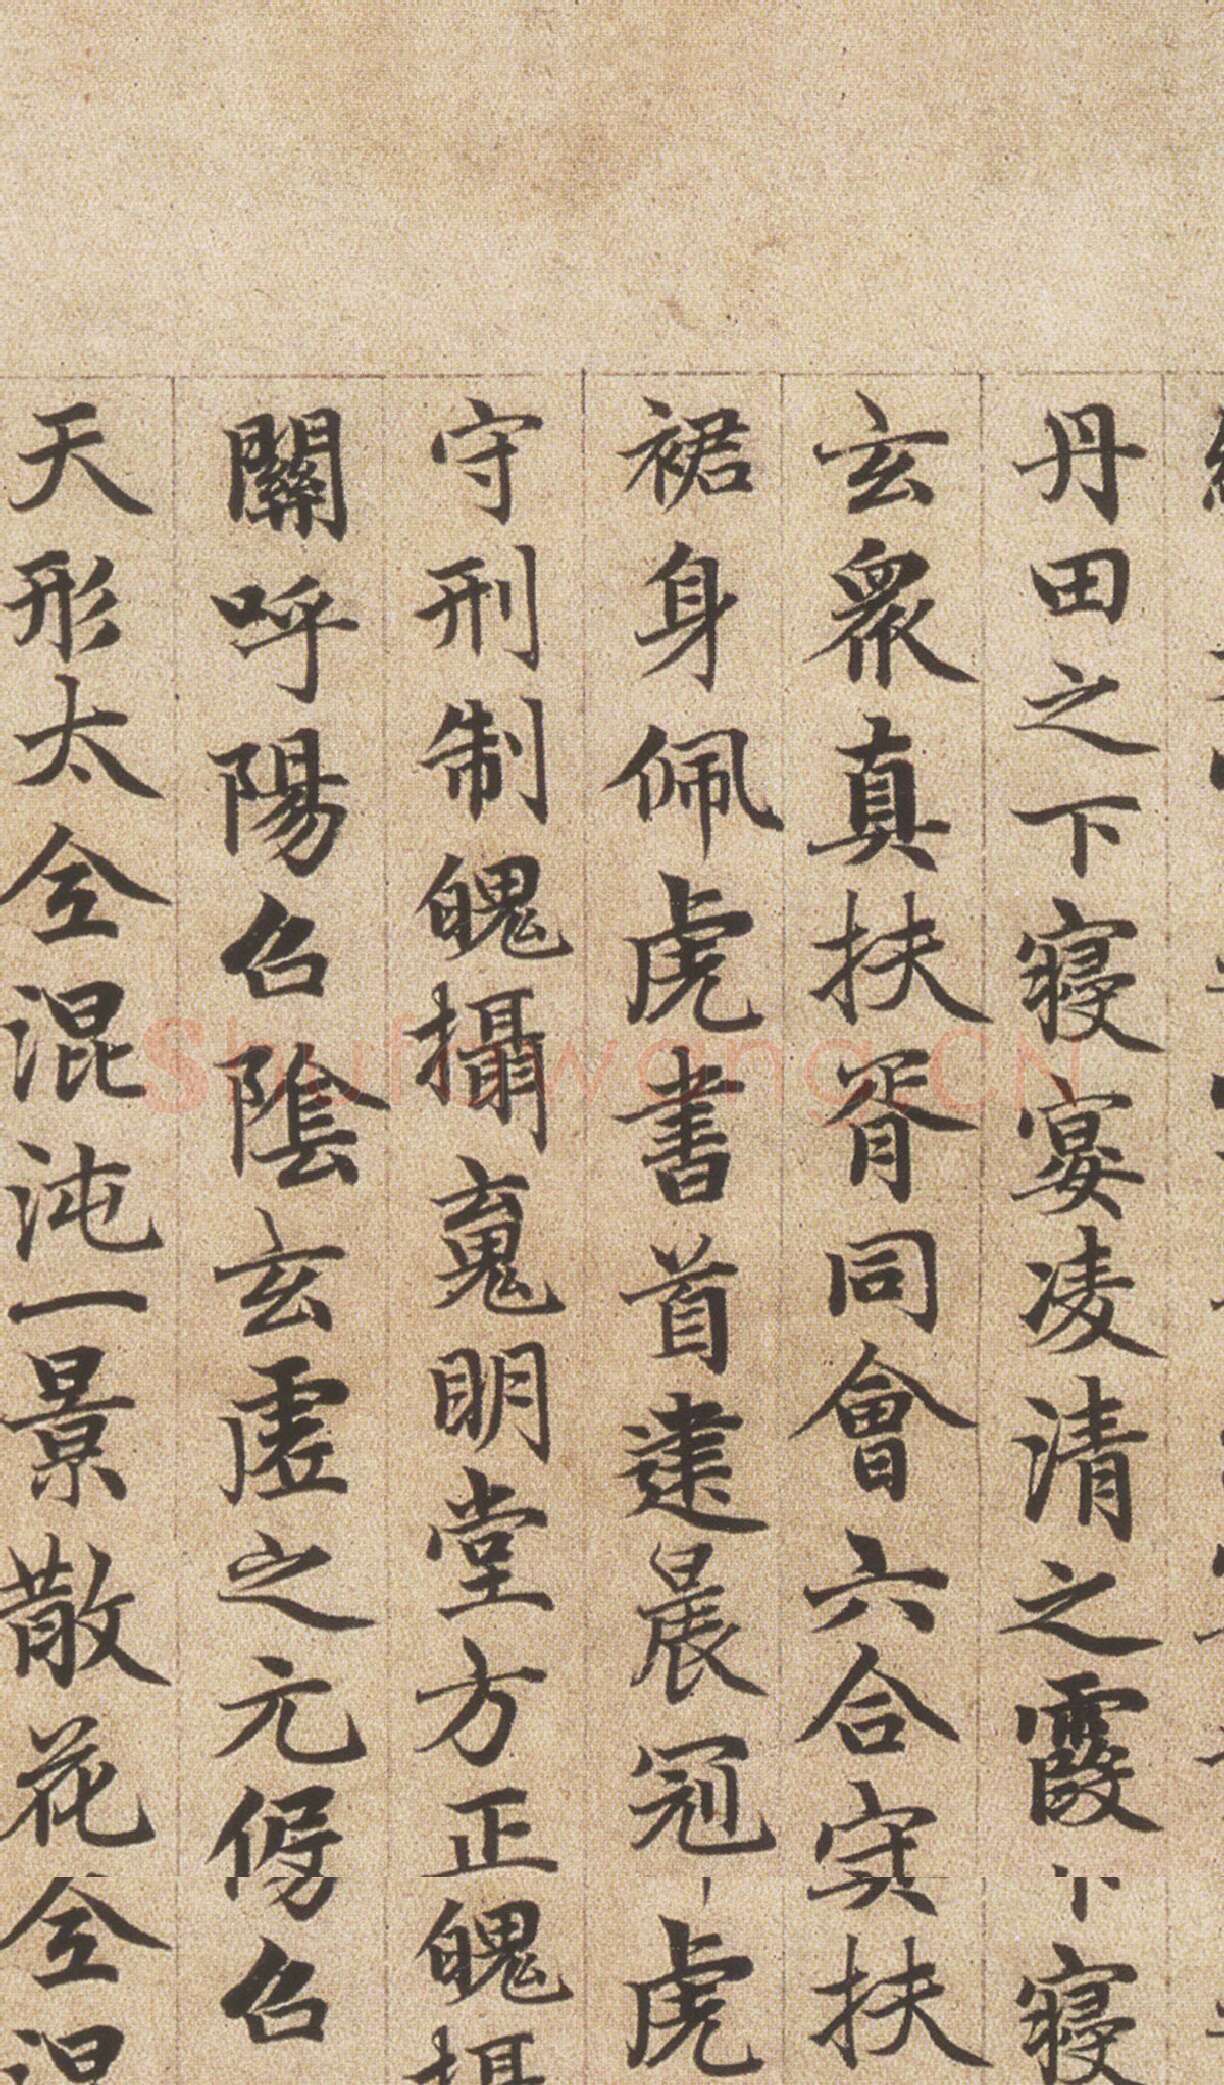 丹田之下寝宴凌清之霞下寝
玄衆真扶胥同會六合実扶
裙身佩虎書首建晨冠虎
守刑制魄攝䰟明堂方正魄攝
關呼陽召陰玄虛之元傍召
天形太全混沌一景散花全混
shufawang.CN